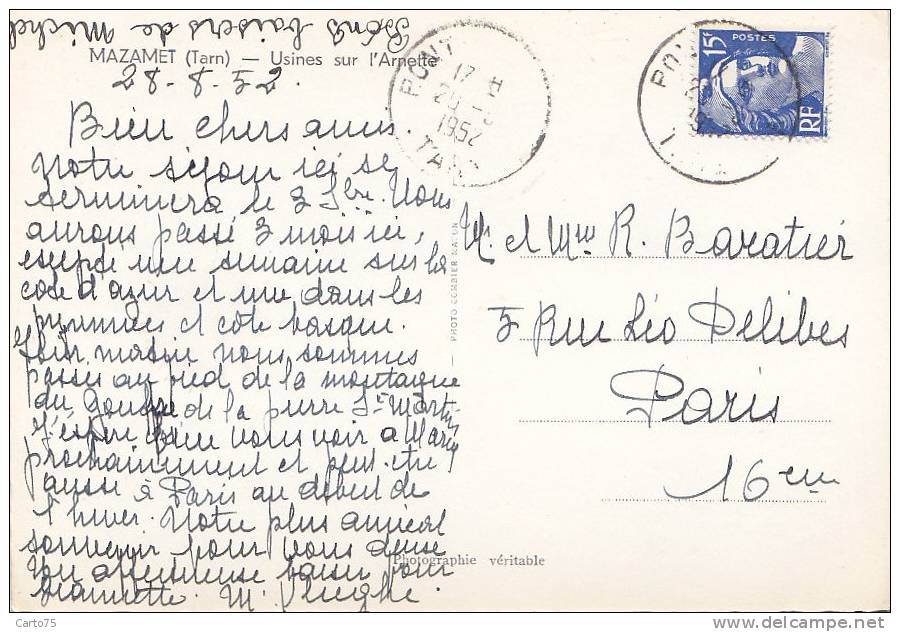 Bons baisers de Michel
MAZAMET (Tarn) — Usines sur l'Arnette
28-8-52.
Bien chers amis.
Notre séjour ici se
terminera le 3 7bre. Nous
aurons passé 3 mois ici,
excepté une semaine sur la
cote d'azur et une dans les
pyrennées et côte basque.
matin nous sommes
passés au pied de la montagne
du gouffre de la pierre St Martin
J'espère bien vous voir a
prochainement et peut-etre
aussi à Paris au début de
l'hiver. Notre plus amical
souvenir pour vous deux
Un affectueux baiser pour
M.
PHOTO COMBIER MACON
Photographie véritable
PONT
17 H
1952
TARN
POSTES
15F
RF
Mr et Mme R. Baratier
5 Rue Léo Delibes
Paris
16eme
Carto75
www.delcampe.net